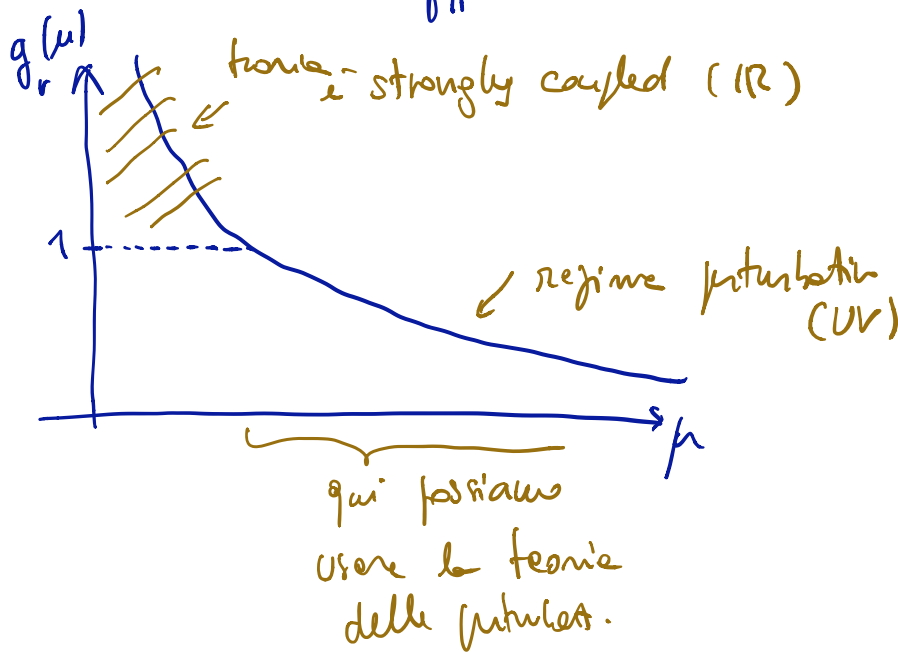 g_r(μ)
teoria è strongly coupled (IR)
1
regime perturbativo
(UV)
μ
qui possiamo
usare la teoria
delle perturbat.